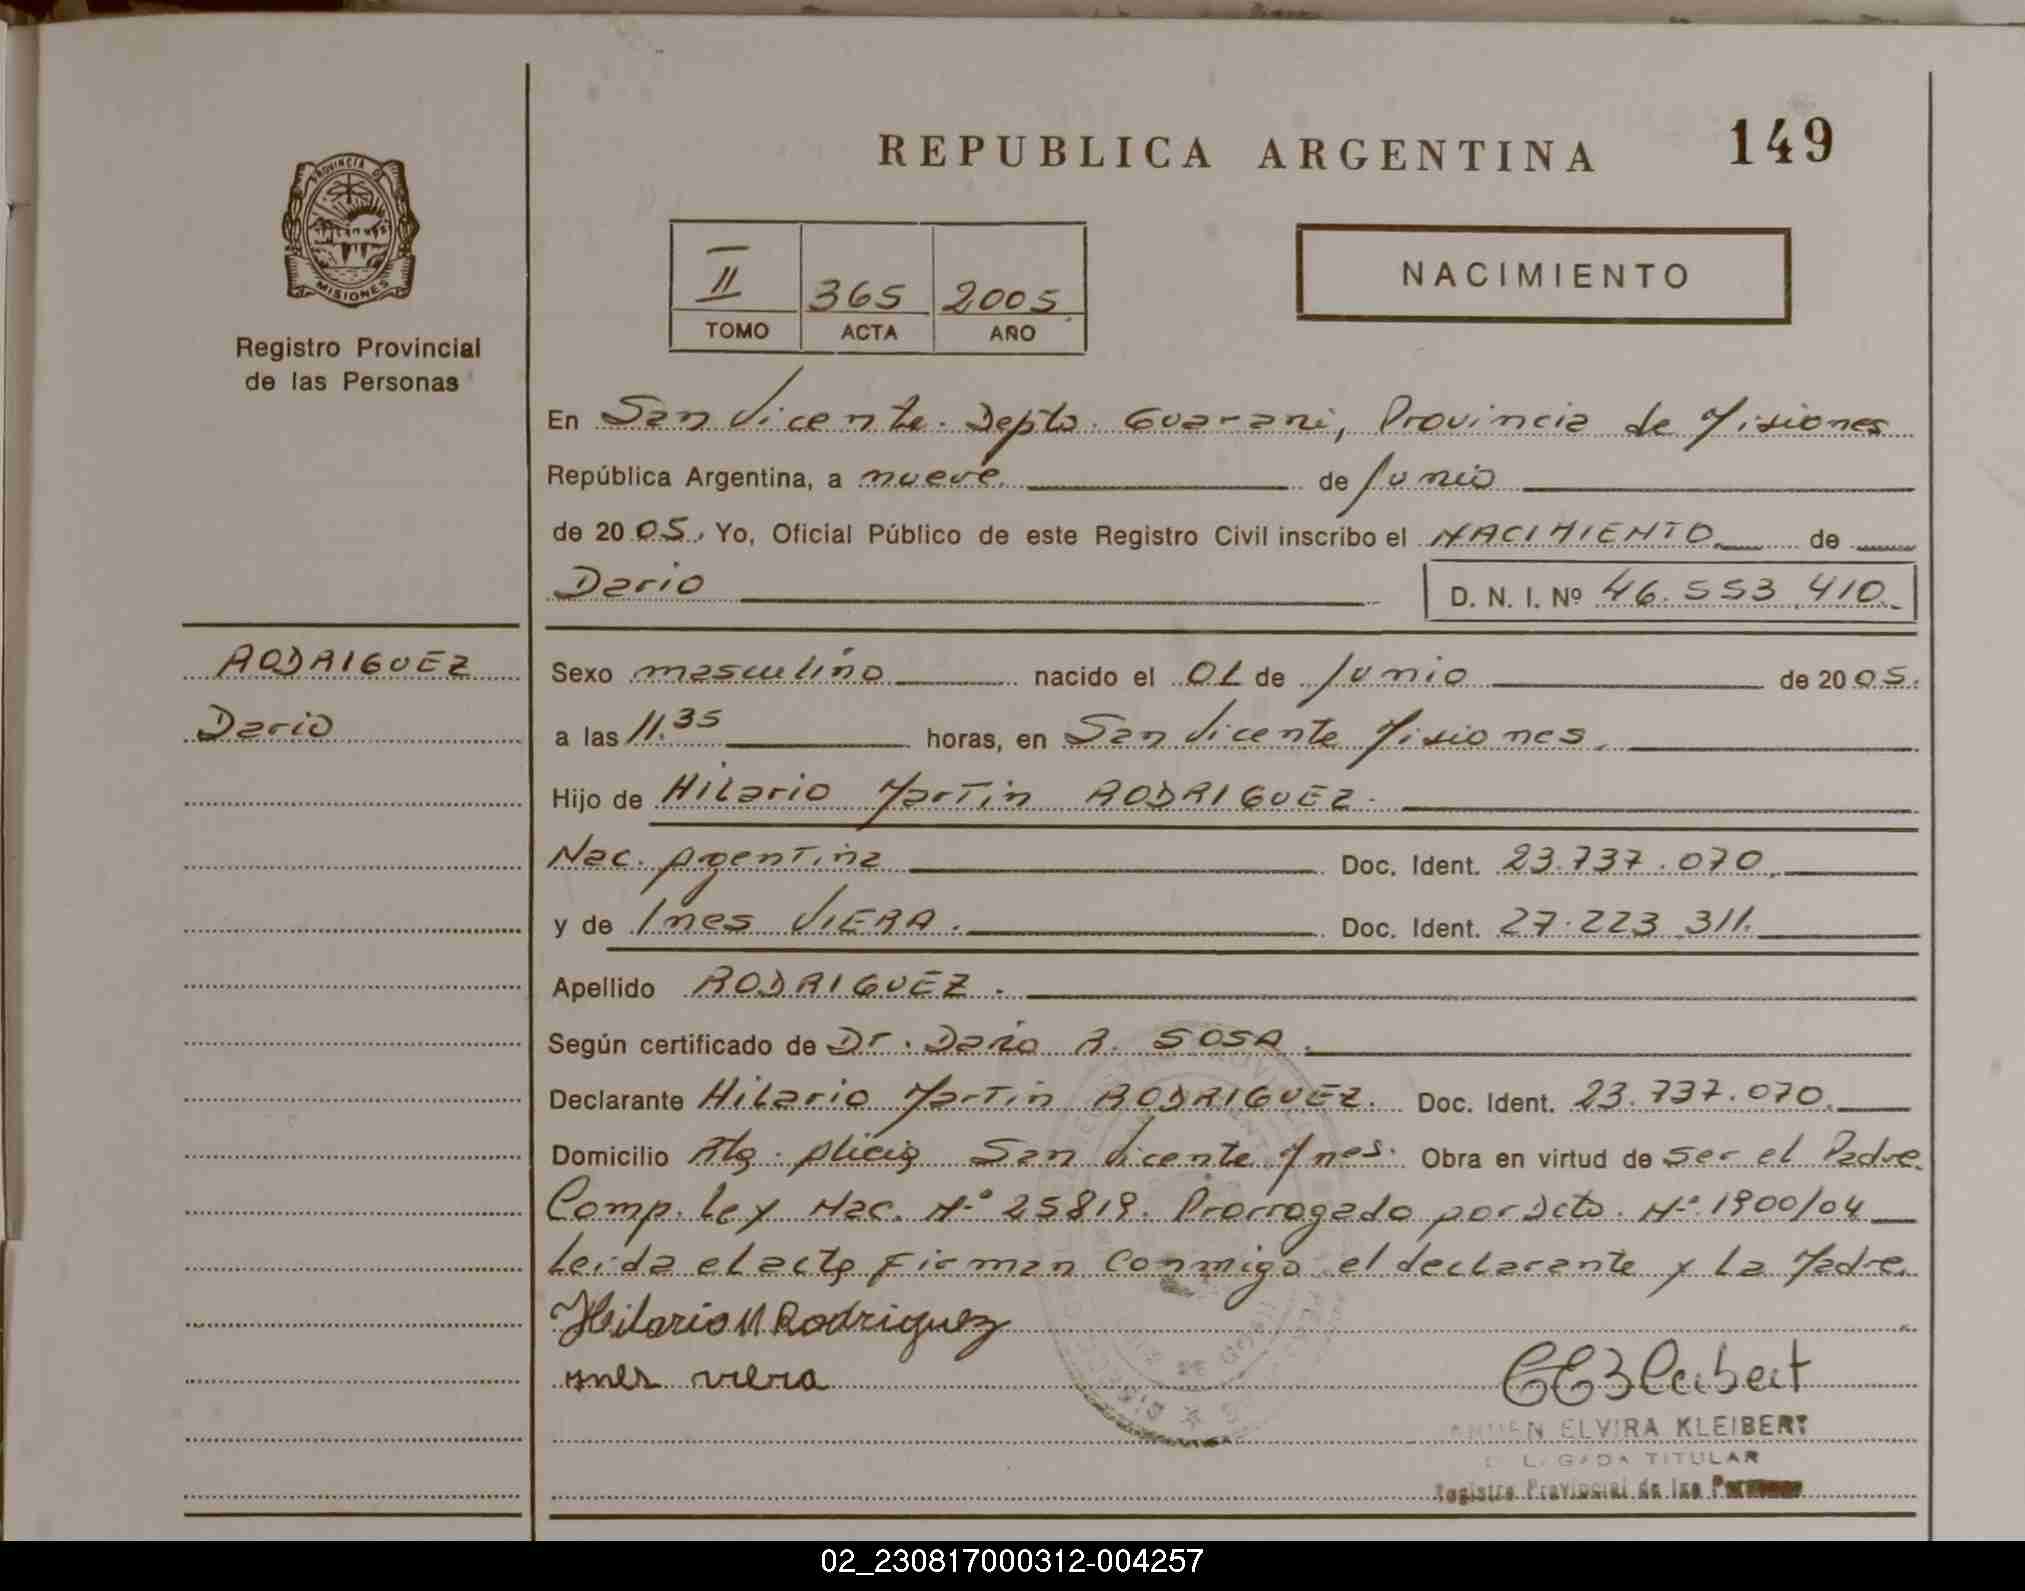 REPUBLICA ARGENTINA 149
PROVINCIA DE
MISIONES
Registro Provincial
de las Personas
II 365 2005
TOMO ACTA AÑO
NACIMIENTO
En San Vicente. Depto. Guarani, Provincia de Misiones
República Argentina, a nueve de Junio
de 2005. Yo, Oficial Público de este Registro Civil inscribo el NACIMIENTO de
Dario D. N. I. Nº 46.553.410.
RODRIGUEZ
Dario
Sexo masculino nacido el 01 de Junio de 2005.
a las 11.35 horas, en San Vicente Misiones.
Hijo de Hilario Martin RODRIGUEZ.
Nac. Argentina Doc. Ident. 23.737.070.
y de Ines VIERA. Doc. Ident. 27.223.311.
Apellido RODRIGUEZ.
Según certificado de Dr. Dario R. SOSA.
Declarante Hilario Martin RODRIGUEZ. Doc. Ident. 23.737.070.
Domicilio San Vicente Mnes. Obra en virtud de ser el Padre.
Comp. Ley Nac. Nº 25819. Prorrogado por Dcto. Nº 1900/04
Leida el acta firman conmigo el declarante y La Madre.
Hilario M Rodriguez
ines viera
CE Kleibert
ELVIRA KLEIBERT
TITULAR
Registro Provincial de las Personas
02_230817000312-004257